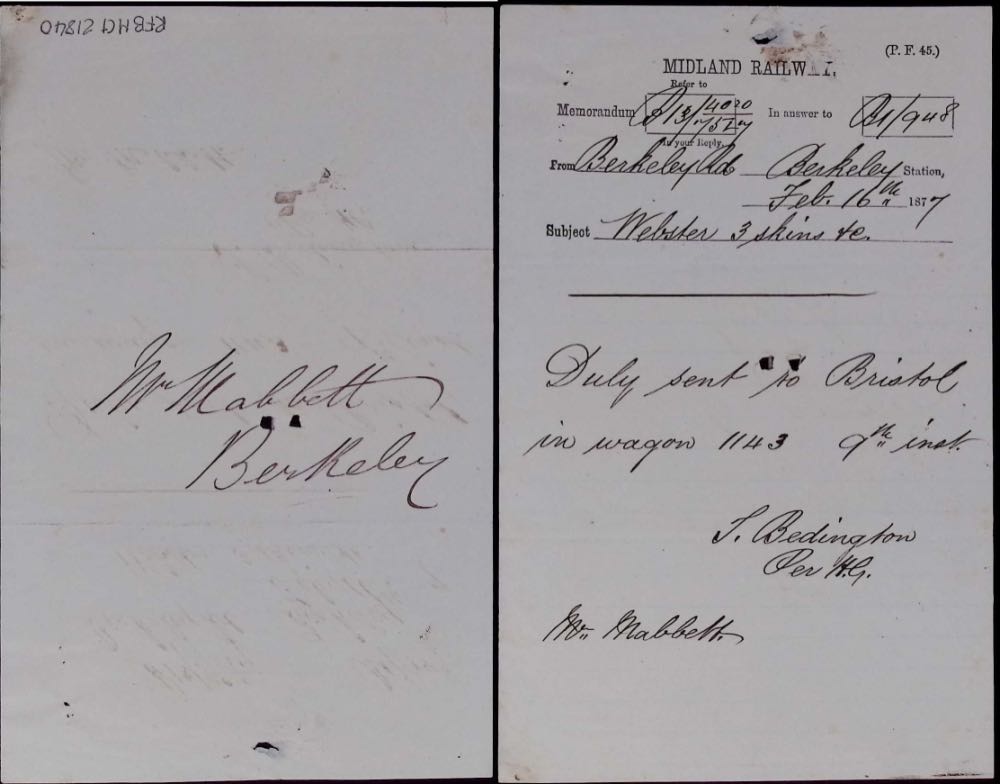 RFBHC1 21840
Mr Mabbett
Berkeley
(P. F. 45.)
MIDLAND
Refer to
Memorandum In answer to B1/948
in your Reply.
From Berkeley Rd Berkeley Station,
Feb. 16th 1877
Subject Webster 3 skins &c.
Duly sent to Bristol
in wagon 1143 9th inst.
T. Bedington
Per H.G.
Mr. Mabbett.